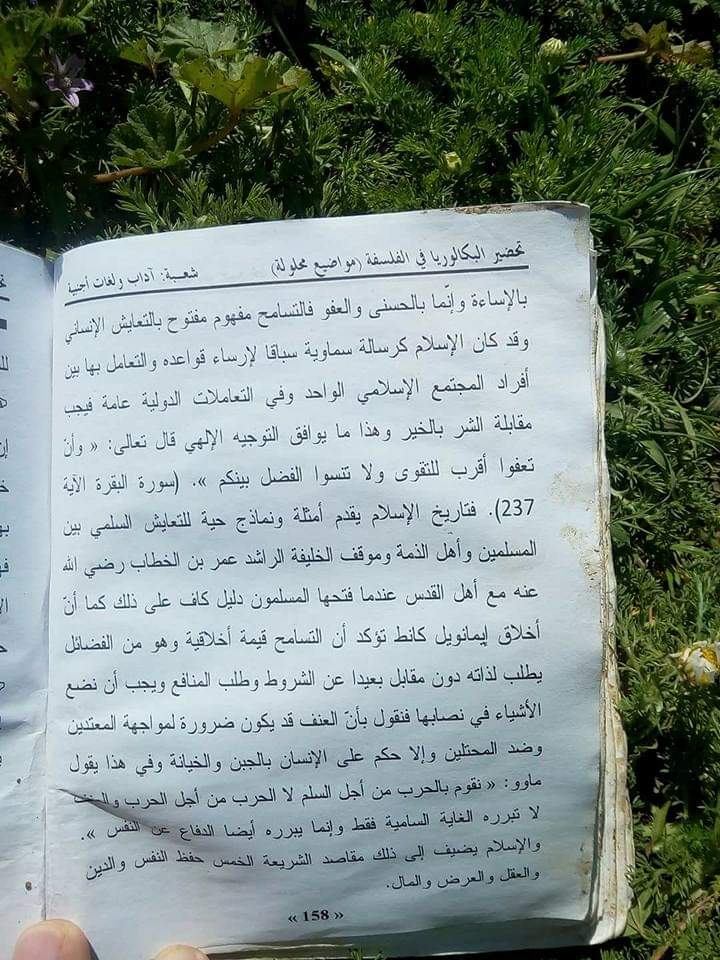 تحضير البكالوريا في الفلسفة (مواضيع محلولة) شعبة: آداب ولغات أجنبية
بالإساءة وإنّما بالحسنى والعفو فالتسامح مفهوم مفتوح بالتعايش الإنساني
وقد كان الإسلام كرسالة سماوية سباقا لإرساء قواعده والتعامل بها بين
أفراد المجتمع الإسلامي الواحد وفي التعاملات الدولية عامة فيجب
مقابلة الشر بالخير وهذا ما يوافق التوجيه الإلهي قال تعالى: « وأنّ
تعفوا أقرب للتقوى ولا تنسوا الفضل بينكم ». (سورة البقرة الآية
237). فتاريخ الإسلام يقدم أمثلة ونماذج حية للتعايش السلمي بين
المسلمين وأهل الذمة وموقف الخليفة الراشد عمر بن الخطاب رضي الله
عنه مع أهل القدس عندما فتحها المسلمون دليل كاف على ذلك كما أنّ
أخلاق إيمانويل كانط تؤكد أن التسامح قيمة أخلاقية وهو من الفضائل
يطلب لذاته دون مقابل بعيدا عن الشروط وطلب المنافع ويجب أن نضع
الأشياء في نصابها فنقول بأنّ العنف قد يكون ضرورة لمواجهة المعتدين
وضد المحتلين وإلا حكم على الإنسان بالجبن والخيانة وفي هذا يقول
ماوو: « نقوم بالحرب من أجل السلم لا الحرب من أجل الحرب والعنف
لا تبرره الغاية السامية فقط وإنما يبرره أيضا الدفاع عن النفس ».
والإسلام يضيف إلى ذلك مقاصد الشريعة الخمس حفظ النفس والدين
والعقل والعرض والمال.
« 158 »